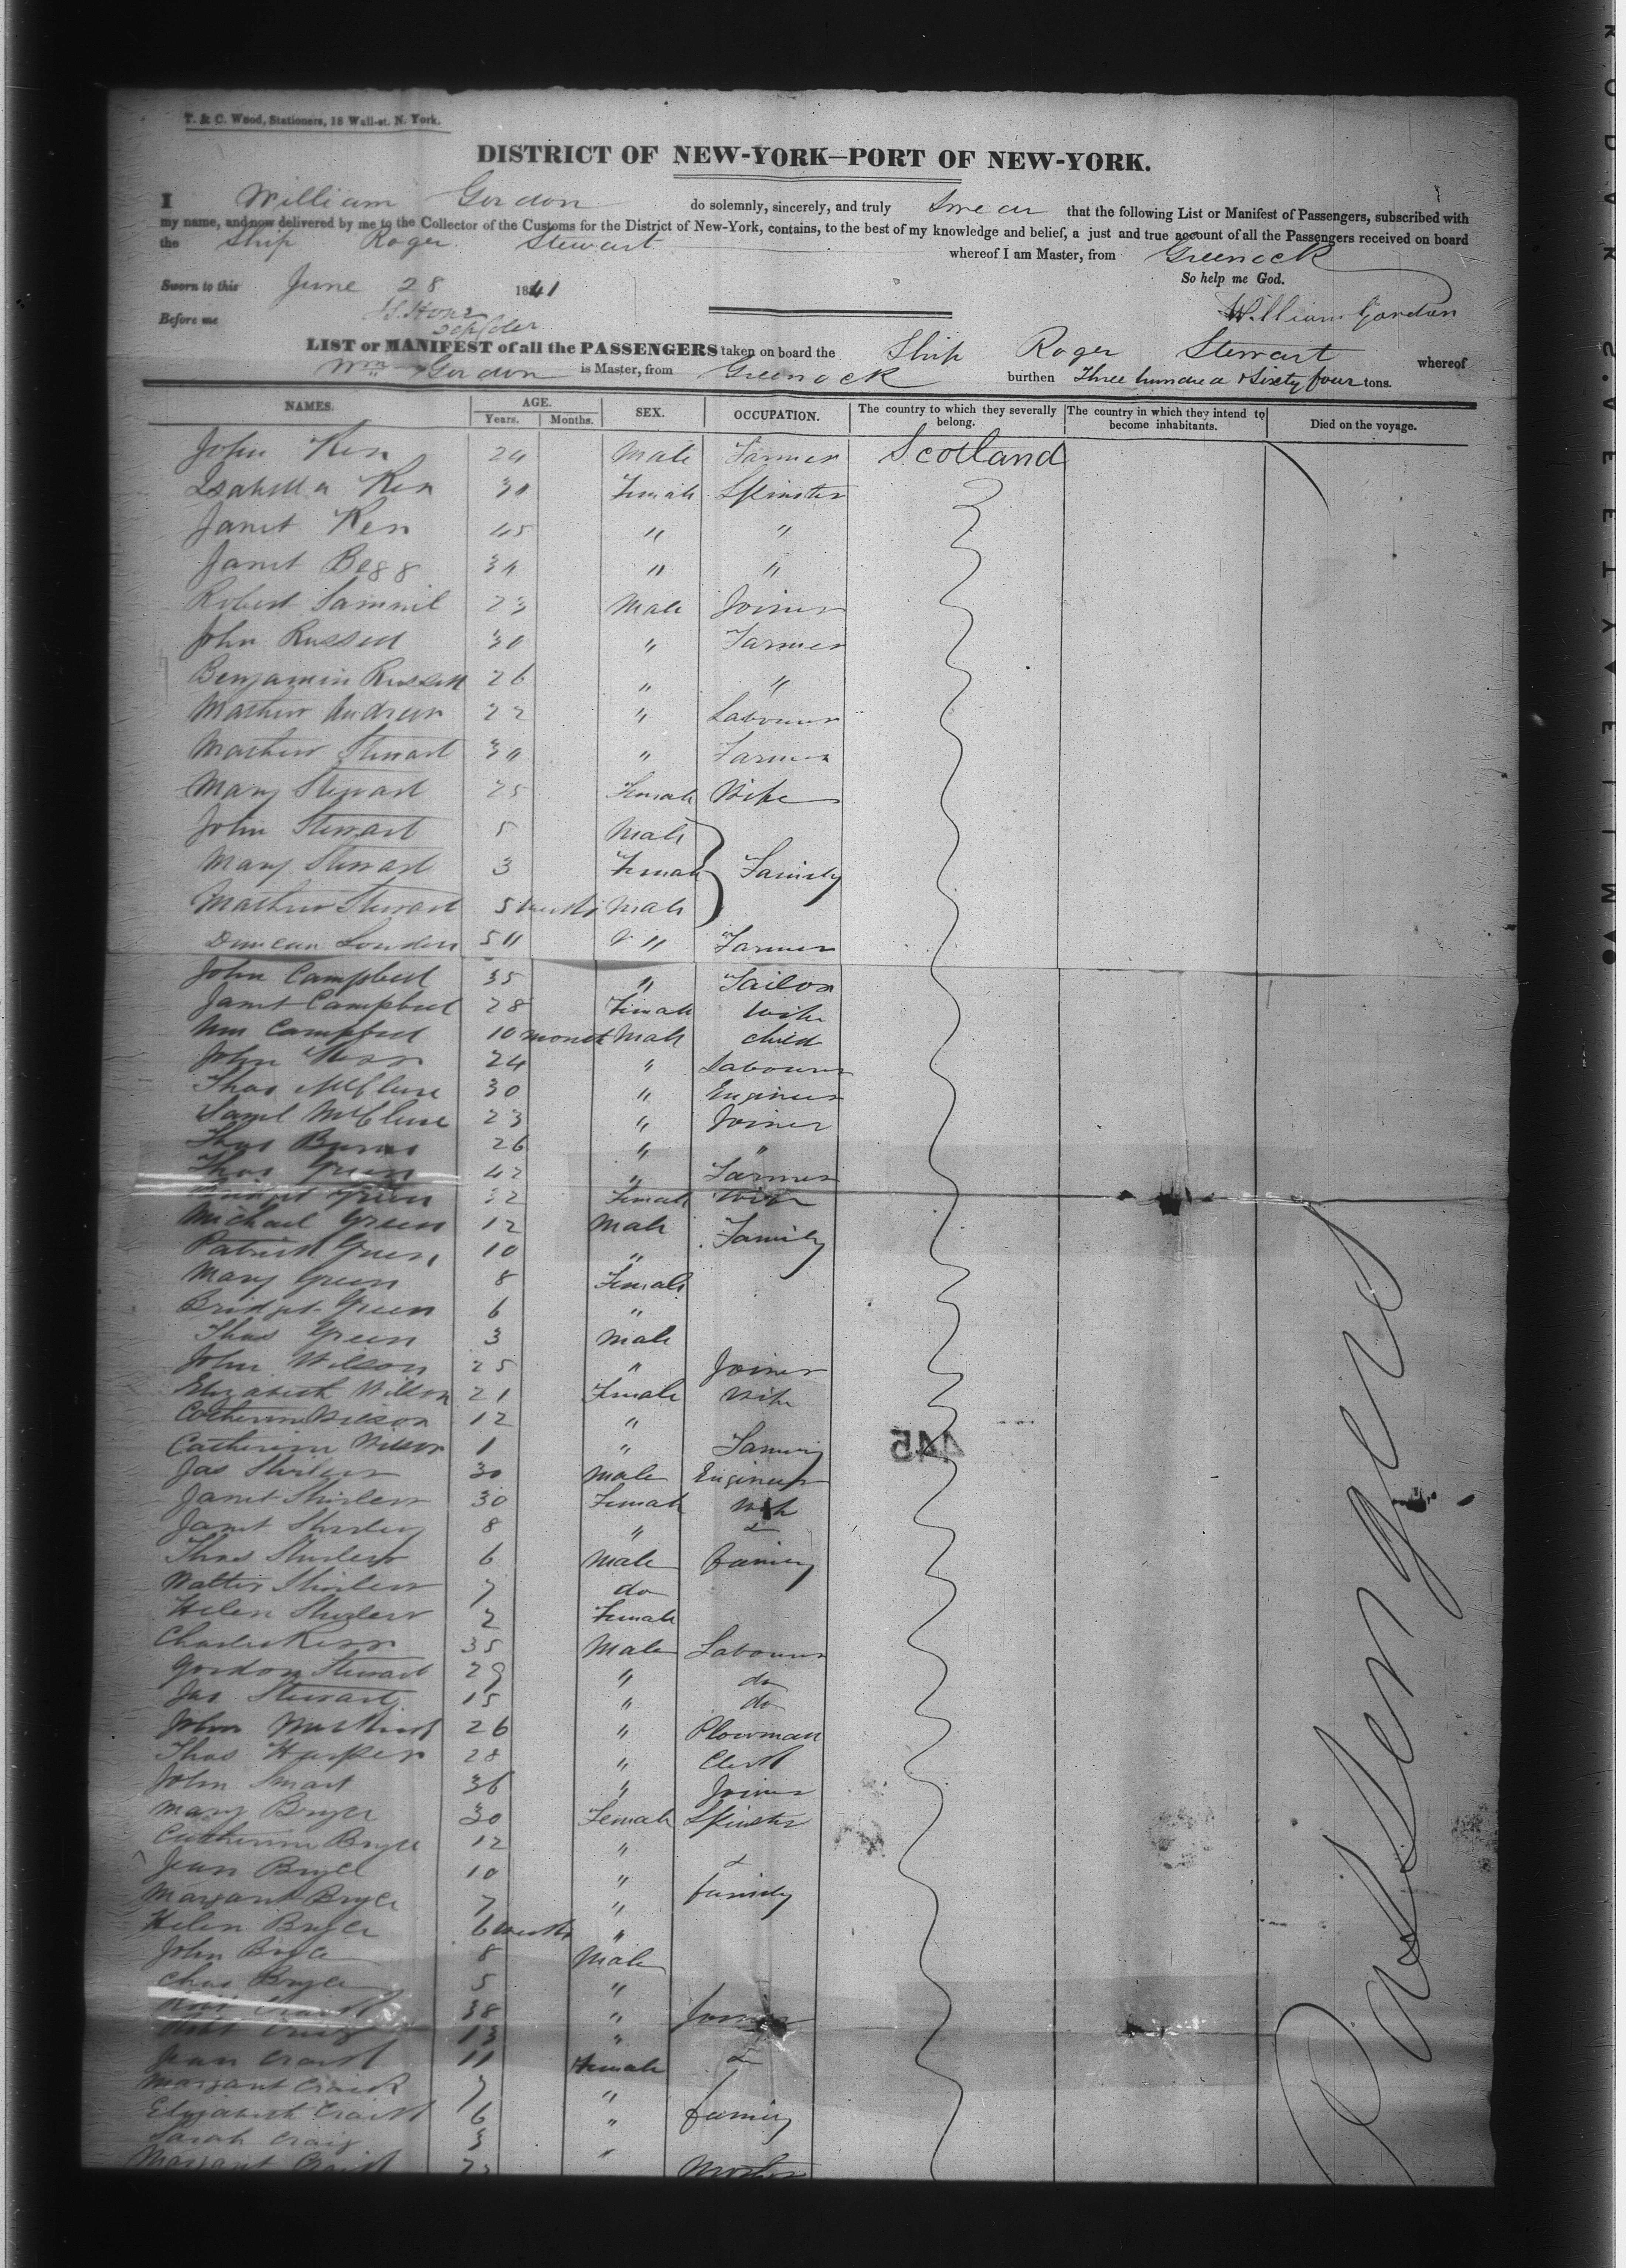 T. & C. Wood, Stationers, 18 Wall-st. N. York.
DISTRICT OF NEW-YORK—PORT OF NEW-YORK.
I William Gordon do solemnly, sincerely, and truly Swear that the following List or Manifest of Passengers, subscribed with
my name, and now delivered by me to the Collector of the Customs for the District of New-York, contains, to the best of my knowledge and belief, a just and true account of all the Passengers received on board
the Ship Roger Stewart whereof I am Master, from Greenock
So help me God.
Sworn to this June 28 1841
Before me
William Gordon
LIST or MANIFEST of all the PASSENGERS taken on board the Ship Roger Stewart whereof
Wm Gordon is Master, from Greenock burthen Three hundred & Sixty four tons.
NAMES. AGE. Years. Months. SEX. OCCUPATION. The country to which they severally belong. The country in which they intend to become inhabitants. Died on the voyage.
John 24 Male Farmer Scotland
Isabella 30 Female Spinster
Janet 45 " "
Janet Begg 30 " "
Robert 23 Male Joiner
John Russell 30 " Farmer
Benjamin Russell 26 " "
Mathew Andrew 22 " Labourer
Mathew Stewart 30 " Farmer
Mary Stewart 25 Female Wife
John Stewart 5 Male
Mary Stewart 3 Female Family
Mathew Stewart 5 weeks Male
Duncan Louden 50 " Farmer
John Campbell 35 " Tailor
Janet Campbell 28 Female Wife
Wm Campbell 10 month Male child
John 24 " Labourer
Thos McClure 30 " Engineer
Saml McClure 23 " Joiner
Thos Burns 26 " "
Thos Green 42 " Farmer
Bridget Green 32 Female Wife
Michael Green 12 Male Family
Patrick Green 10 "
Mary Green 8 Female
Bridget Green 6 "
Thos Green 3 Male
John Wilson 25 " Joiner
Elizabeth Wilson 21 Female Wife
Catherine Wilson 12 "
Catherine Wilson 1 " Family
445
Jas 30 Male Engineer
Janet 30 Female Wife
Janet 8 " &
Thos 6 Male family
Walter 7 do
Helen 2 Female
Charles 35 Male Labourer
Gordon Stewart 29 " do
Jas Stewart 15 " do
John 26 " Plowman
Thos Harper 28 " Clerk
John Smart 36 " Joiner
Mary Bryce 30 Female Spinster
Catherine Bryce 12 "
Jean Bryce 10 " &
Margaret Bryce 7 " family
Helen Bryce 6 weeks "
John Bryce 8 Male
Chas Bryce 5 "
Robt 38 "
Robt Craig 13 "
Jean 11 Female &
Margaret 7 "
Elizabeth 6 " family
Sarah Craig 3 "
Margaret
Passengers